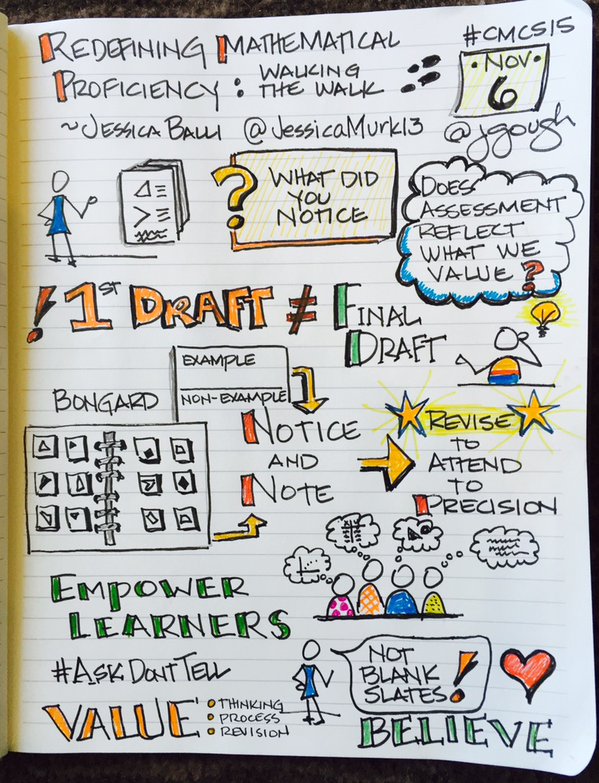 REDEFINING MATHEMATICAL
PROFICIENCY: WALKING
THE WALK
#CMCS15
NOV
6
~JESSICA BALLI @JESSICAMURK13 @jgough
?
WHAT DID
YOU
NOTICE
DOES
ASSESSMENT
REFLECT
WHAT WE
VALUE?
! 1ST DRAFT ≠ FINAL
DRAFT
EXAMPLE
NON-EXAMPLE
BONGARD
NOTICE
AND
NOTE
REVISE
TO
ATTEND
TO
PRECISION
EMPOWER
LEARNERS
#ASKDON'TTELL
NOT
BLANK
SLATES!
VALUE: THINKING
: PROCESS
: REVISION
BELIEVE